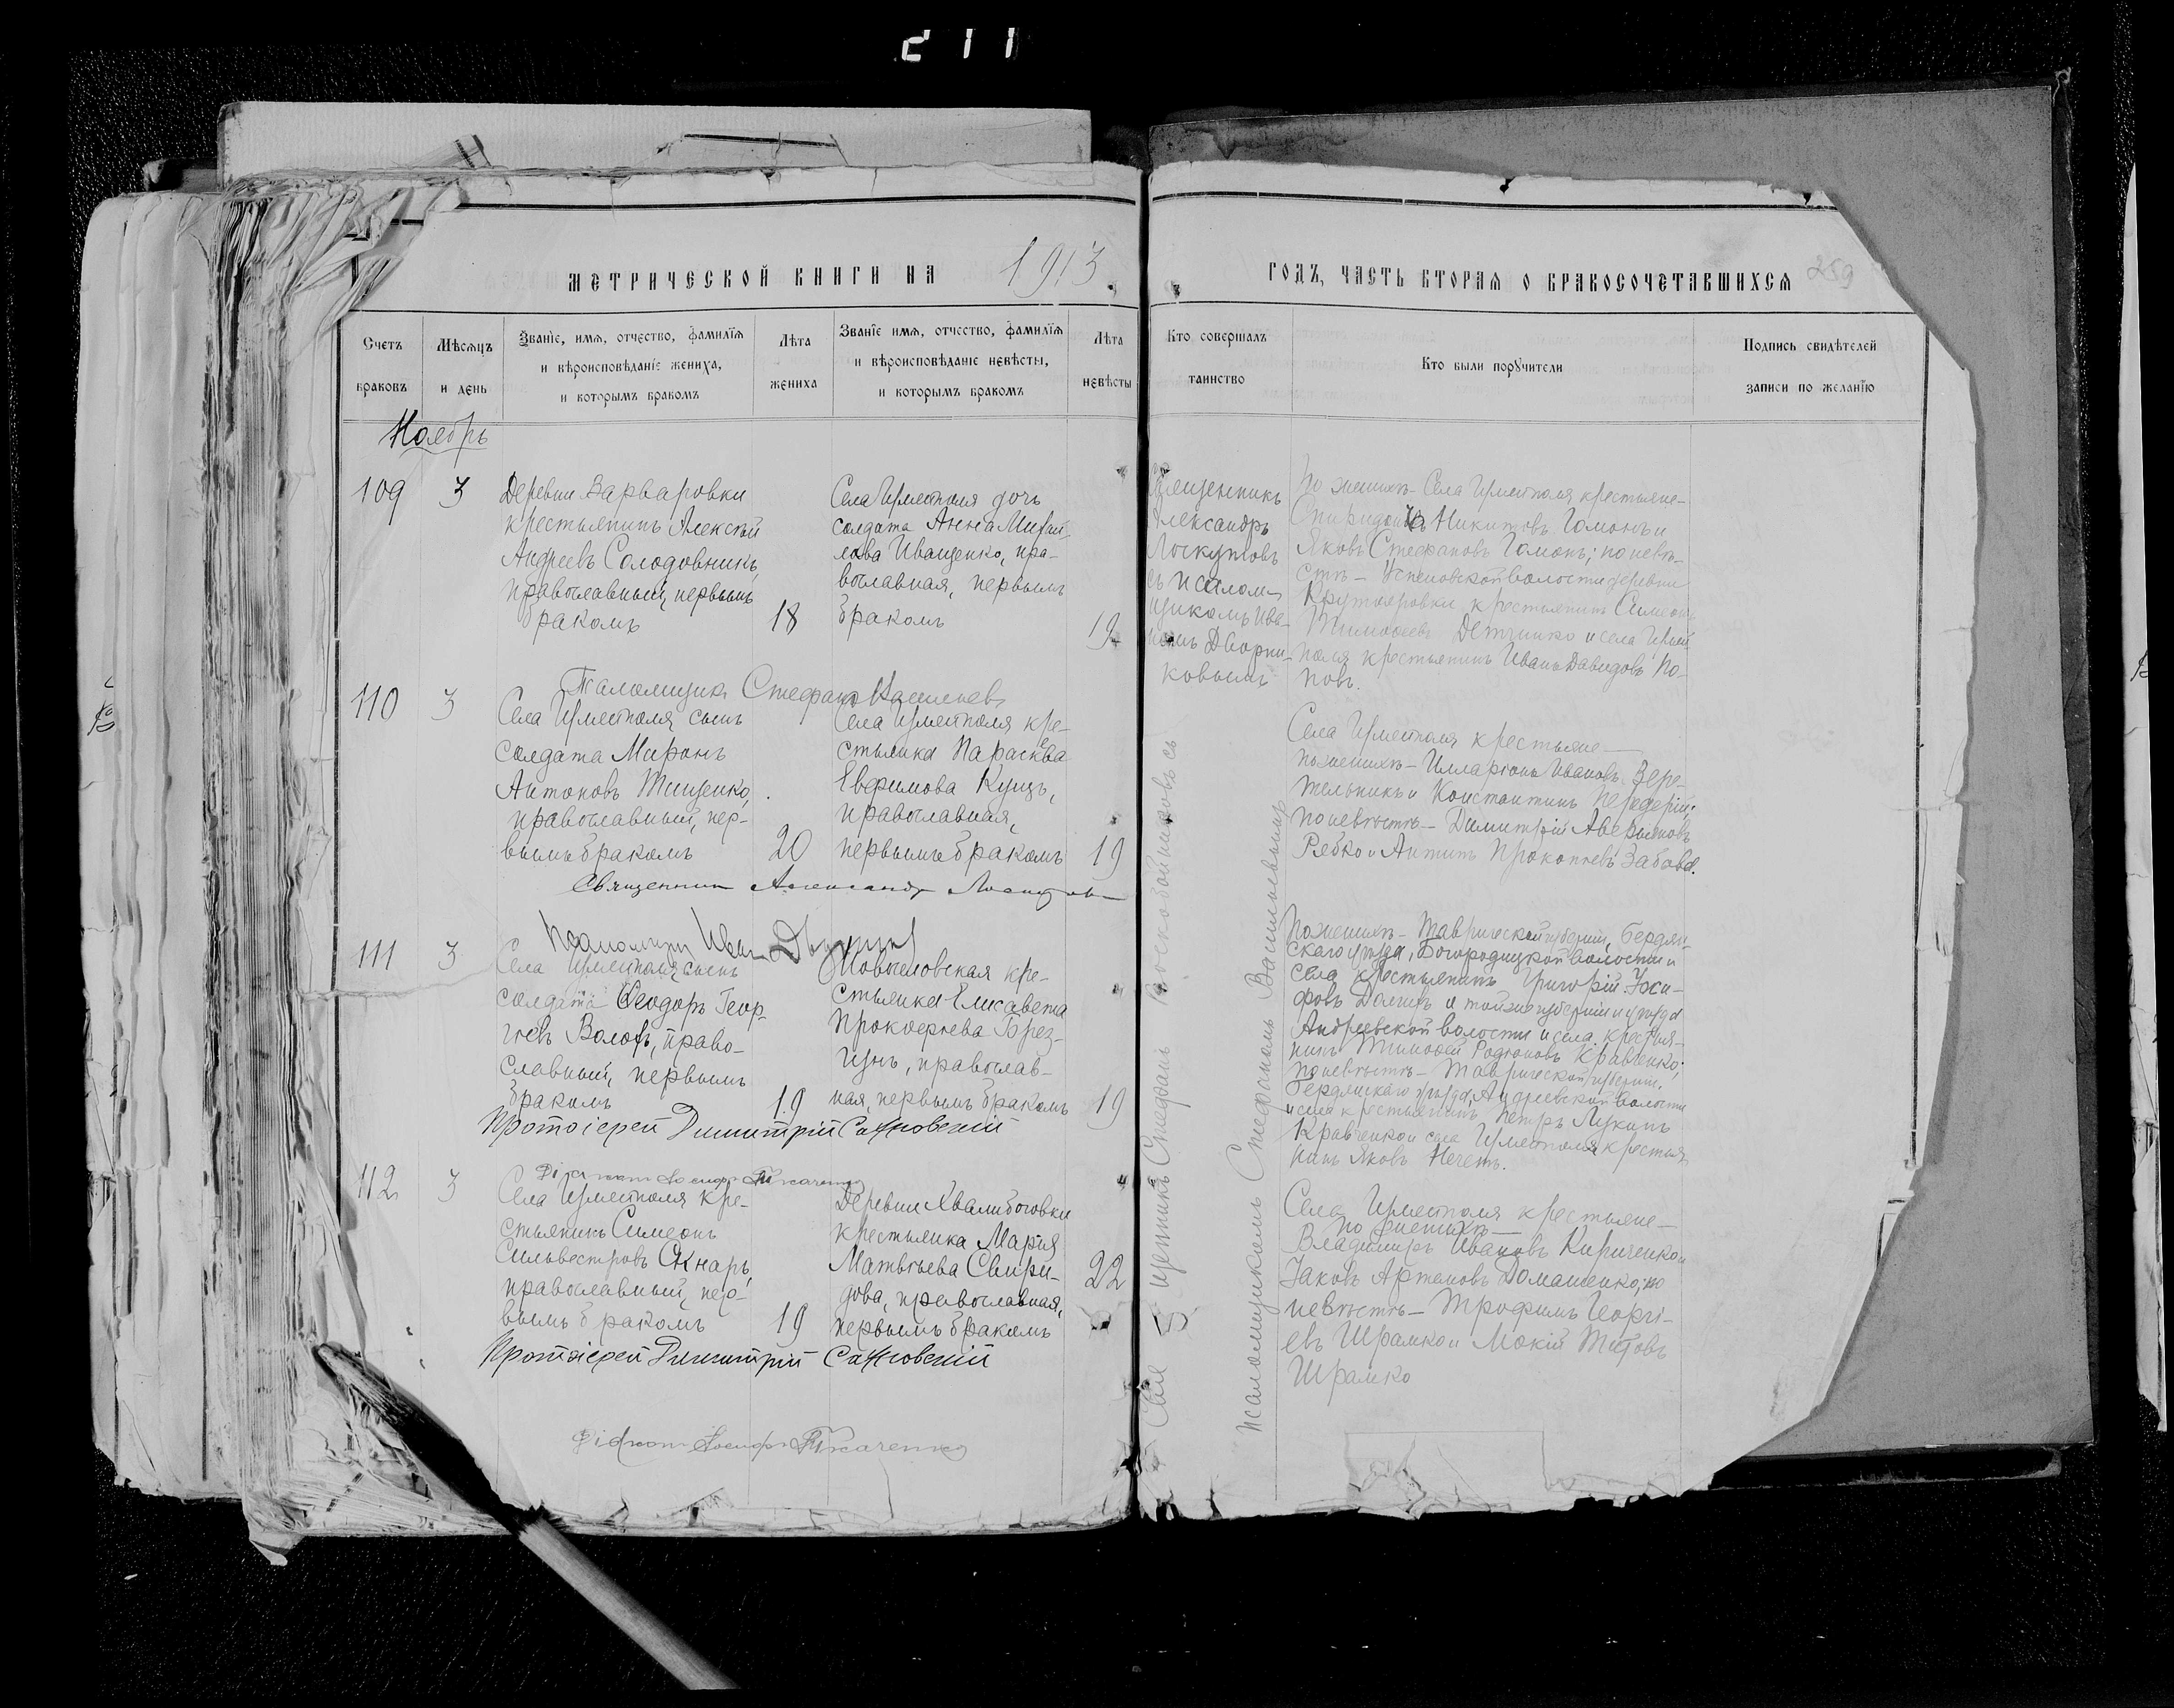 211
МЕТРИЧЕСКОЙ КНИГИ НА 1913
ГОДЪ, ЧАСТЬ ВТОРАЯ О БРАКОСОЧЕТАВШИХСЯ 259
Счетъ браковъ
Мѣсяцъ и день
Званіе, имя, отчество, фамилія
и вѣроисповѣданіе жениха,
и которымъ бракомъ
Лѣта жениха
Званіе имя, отчество, фамилія
и вѣроисповѣданіе невѣсты,
и которымъ бракомъ
Лѣта невѣсты
Кто совершалъ таинство
Кто были поручители
Подпись свидѣтелей
записи по желанію
Ноябрь
109 3
Деревни Варваровки
крестьянинъ Алексѣй
Андреевъ Солодовникъ,
православный, первымъ
бракомъ
18
Села Цареполя дочь
солдата Анна Михаи-
лова Иващенко, пра-
вославная, первымъ
бракомъ
19
Священникъ
Александръ
Лоскутовъ
съ псалом-
щикомъ Ива-
номъ Дворни-
ковымъ
По женихѣ - Села крестьяне -
Никитовъ Гамонъ и
Яковъ Стефановъ Гамонъ; по невѣ-
стѣ - Успеновской волости деревни
крестьянинъ Симеонъ
Тимофеевъ и села
поля крестьянинъ Иванъ Давидовъ По-
повъ.
Псаломщикъ Стефанъ Васильевъ
110 3
Села сынъ
солдата Миронъ
Антоновъ Тищенко,
православный, пер-
вымъ бракомъ
20
Села кре-
стьянка Параскева
Евфимова Куцъ,
православная,
первымъ бракомъ
19
Села крестьяне -
по женихѣ - Илларіонъ Ивановъ Вере-
тельникъ и Константинъ Передерій;
по невѣстѣ - Димитрій Аверьяновъ
Рябко и Антипъ Прокопіевъ Забава.
Священникъ Александръ Лоскутовъ
Псаломщикъ Иванъ
111 3
Села сынъ
солдата Ѳеодоръ Геор-
гіевъ Волохъ, право-
славный, первымъ
бракомъ
19
Новоселовская кре-
стьянка Елисавета
Прокофьева Брез-
гунъ, православ-
ная, первымъ бракомъ
19
По женихѣ - Таврической губерніи, Бердян-
скаго уѣзда, Богородицкой волости и
села крестьянинъ Григорій Іоси-
фовъ и той же губерніи и уѣзда
Андреевской волости и села крестья-
нинъ Тимофей Родіоновъ Кравченко;
по невѣстѣ - Таврической губерніи.
Бердянскаго уѣзда, Андреевской волости
и села крестьянинъ Петръ Лукинъ
Кравченко и села крестья-
нинъ Яковъ
Протоіерей Димитрій Сахновскій
Діаконъ Іосифъ Ткаченко
112 3
Села кре-
стьянинъ Симеонъ
Сильвестровъ Скнарь,
православный, пер-
вымъ бракомъ
19
Деревни Хвалибоговки
крестьянка Марія
Матвѣева Свири-
дова, православная,
первымъ бракомъ
22
Села крестьяне -
по женихѣ -
Владимиръ Ивановъ Кириченко и
Іаковъ Домашенко; по
невѣстѣ - Трофимъ Георгі-
евъ Шрамко и Мокій Титовъ
Шрамко
Протоіерей Димитрій Сахновскій
Діаконъ Іосифъ Ткаченко
Священникъ Стефанъ съ
псаломщикомъ Стефаномъ Васильевымъ